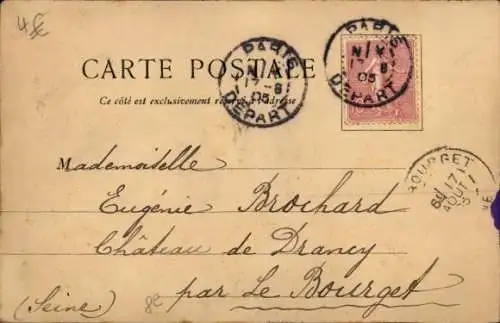 PARIS
17-8
05
DEPART
PARIS
17-8
05
DEPART
CARTE POSTALE
Ce côté est exclusivement réservé à l'adresse
BOURGET
17
AOUT
Mademoiselle
Eugénie Brochard
Château de Drancy
par Le Bourget
(Seine)